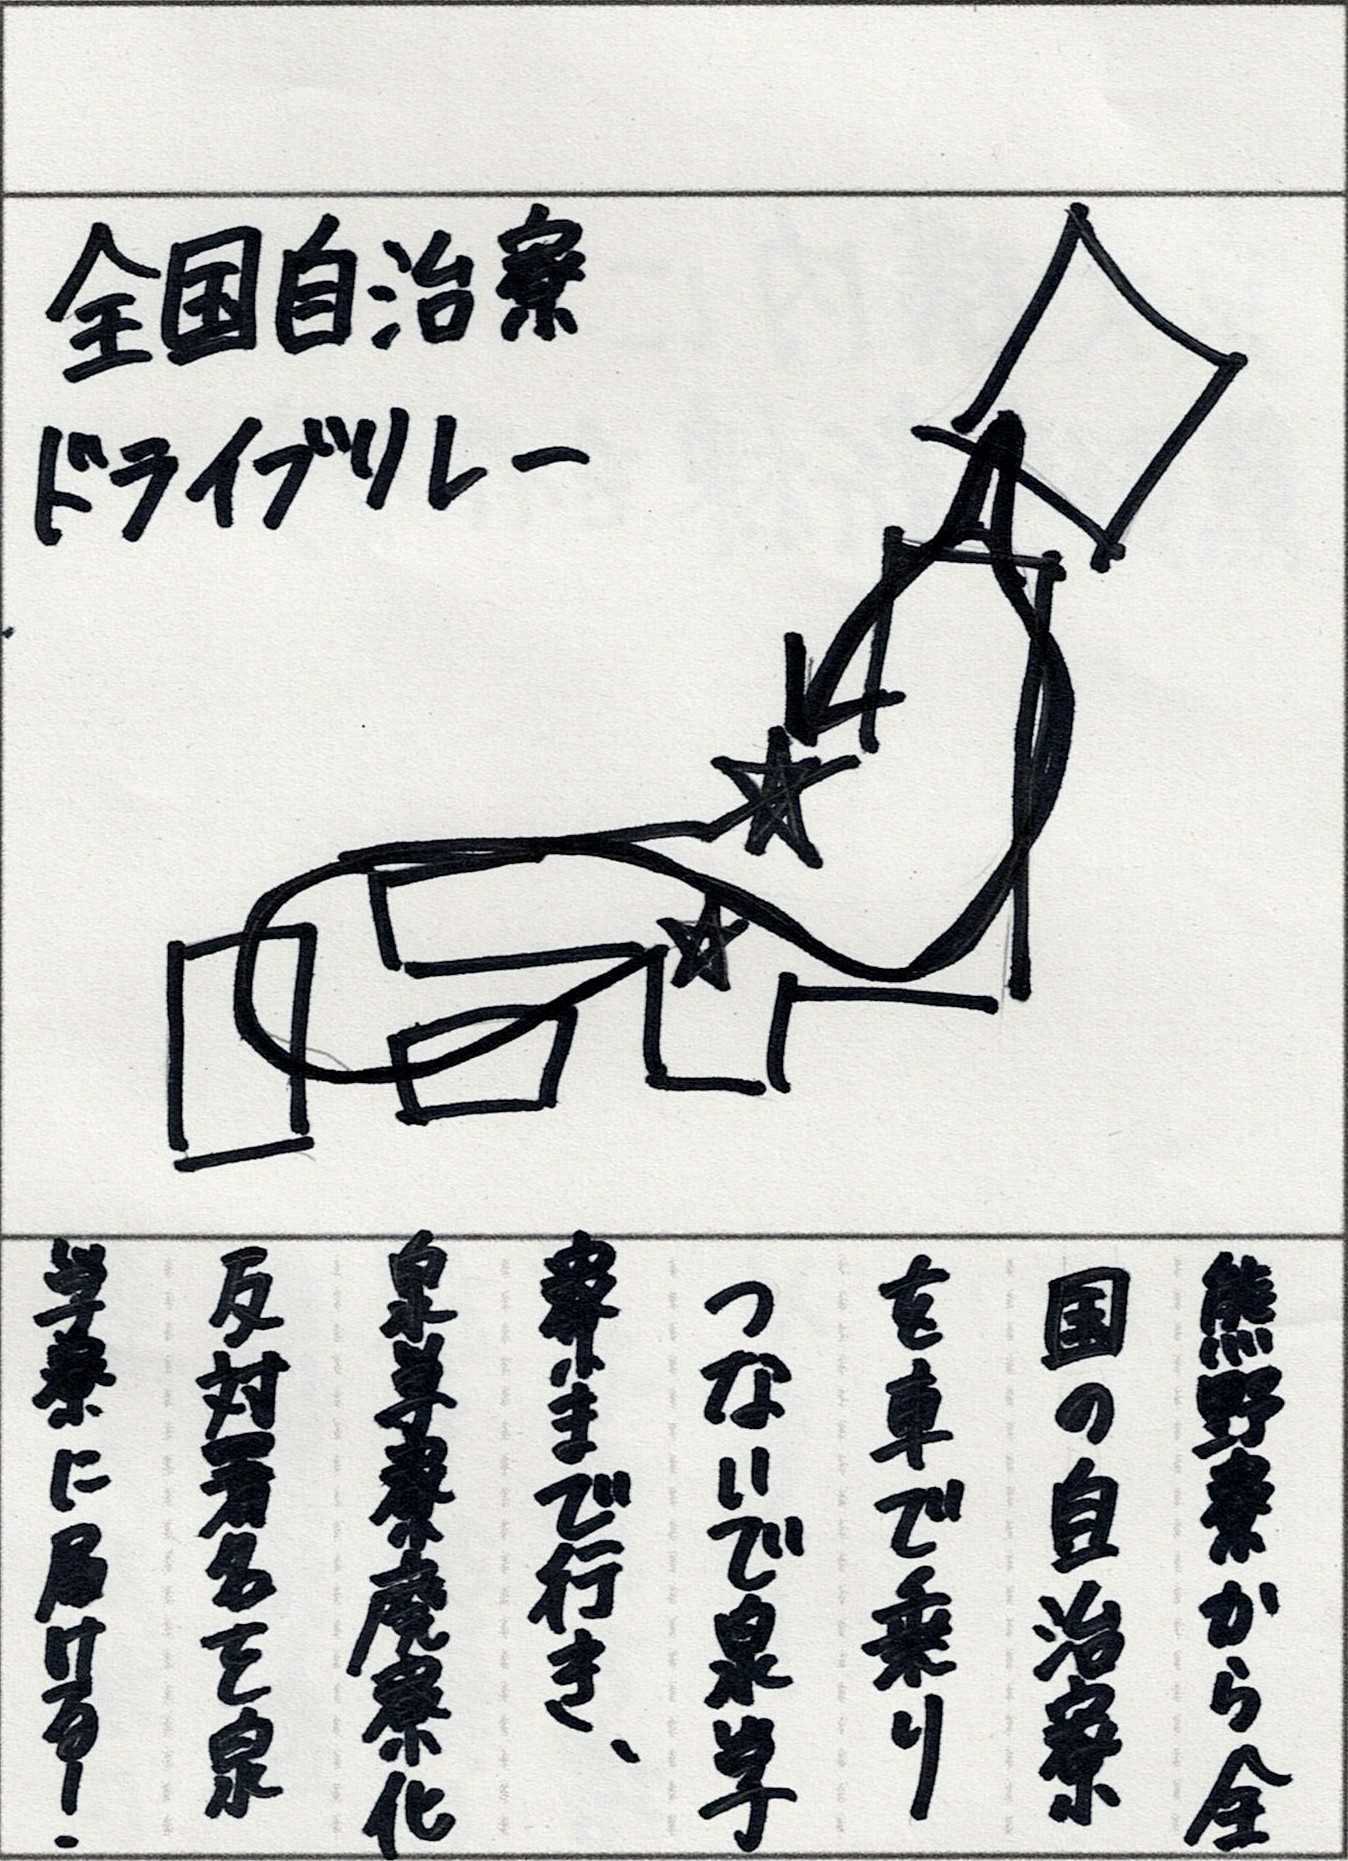 全国自治寮
ドライブリレー
熊野寮から全
国の自治寮
を車で乗り
つないで泉学
寮まで行き、
泉学寮廃寮化
反対署名を泉
学寮に届ける!